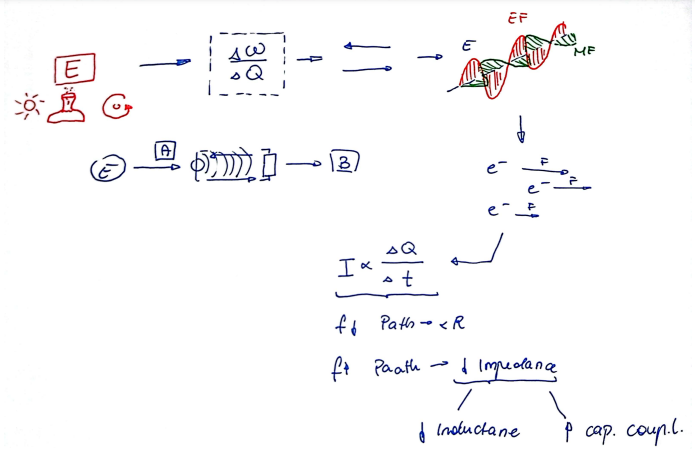 EF
E
E
MF
Δω
ΔQ
A
E
B
e⁻ F
e⁻ F
e⁻ F
I ∝ ΔQ
Δt
f↓ Path → < R
f↑ Paath → ↓ Impedana
↓ Inductane ↑ cap. coupl.